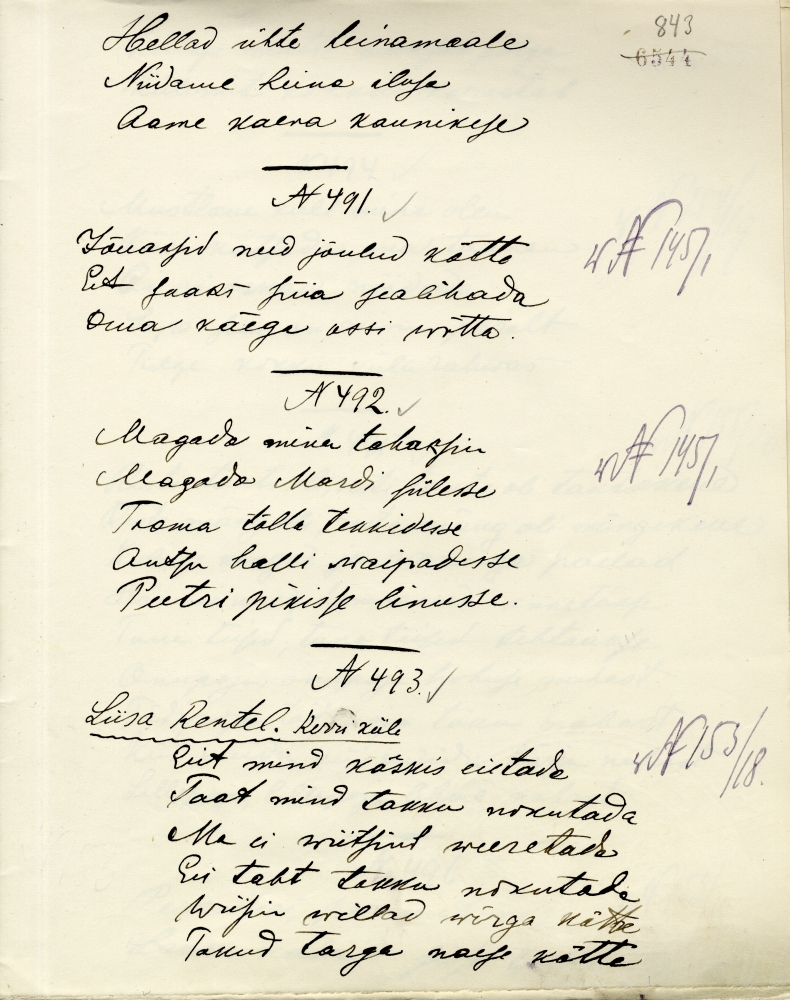 843
6544
Hellad ühte heinamaale
Niidame heina ilusa
Aame kaera kaunikese
N 491.
Jõuaksid need jõulud kätte
Et saaks süia sealihada
Oma käega ossi wõtta.
W N 145/1
N 492.
Magada mina tahaksin
Magada Mardi sülesse
Tooma tälla tekkidesse
Antsu halli waipadesse
Peetri pikisse linusse.
W N 145/1
N 493.
Liisa Rentel. Kerri küla
W N 153/18.
Eit mind käskis eietada
Taat mind takku nokutada
Ma ei wiitsind weeretada
Ei taht takku nokutada
Wiisin willad wirga kätte
Takud targa naese kätte